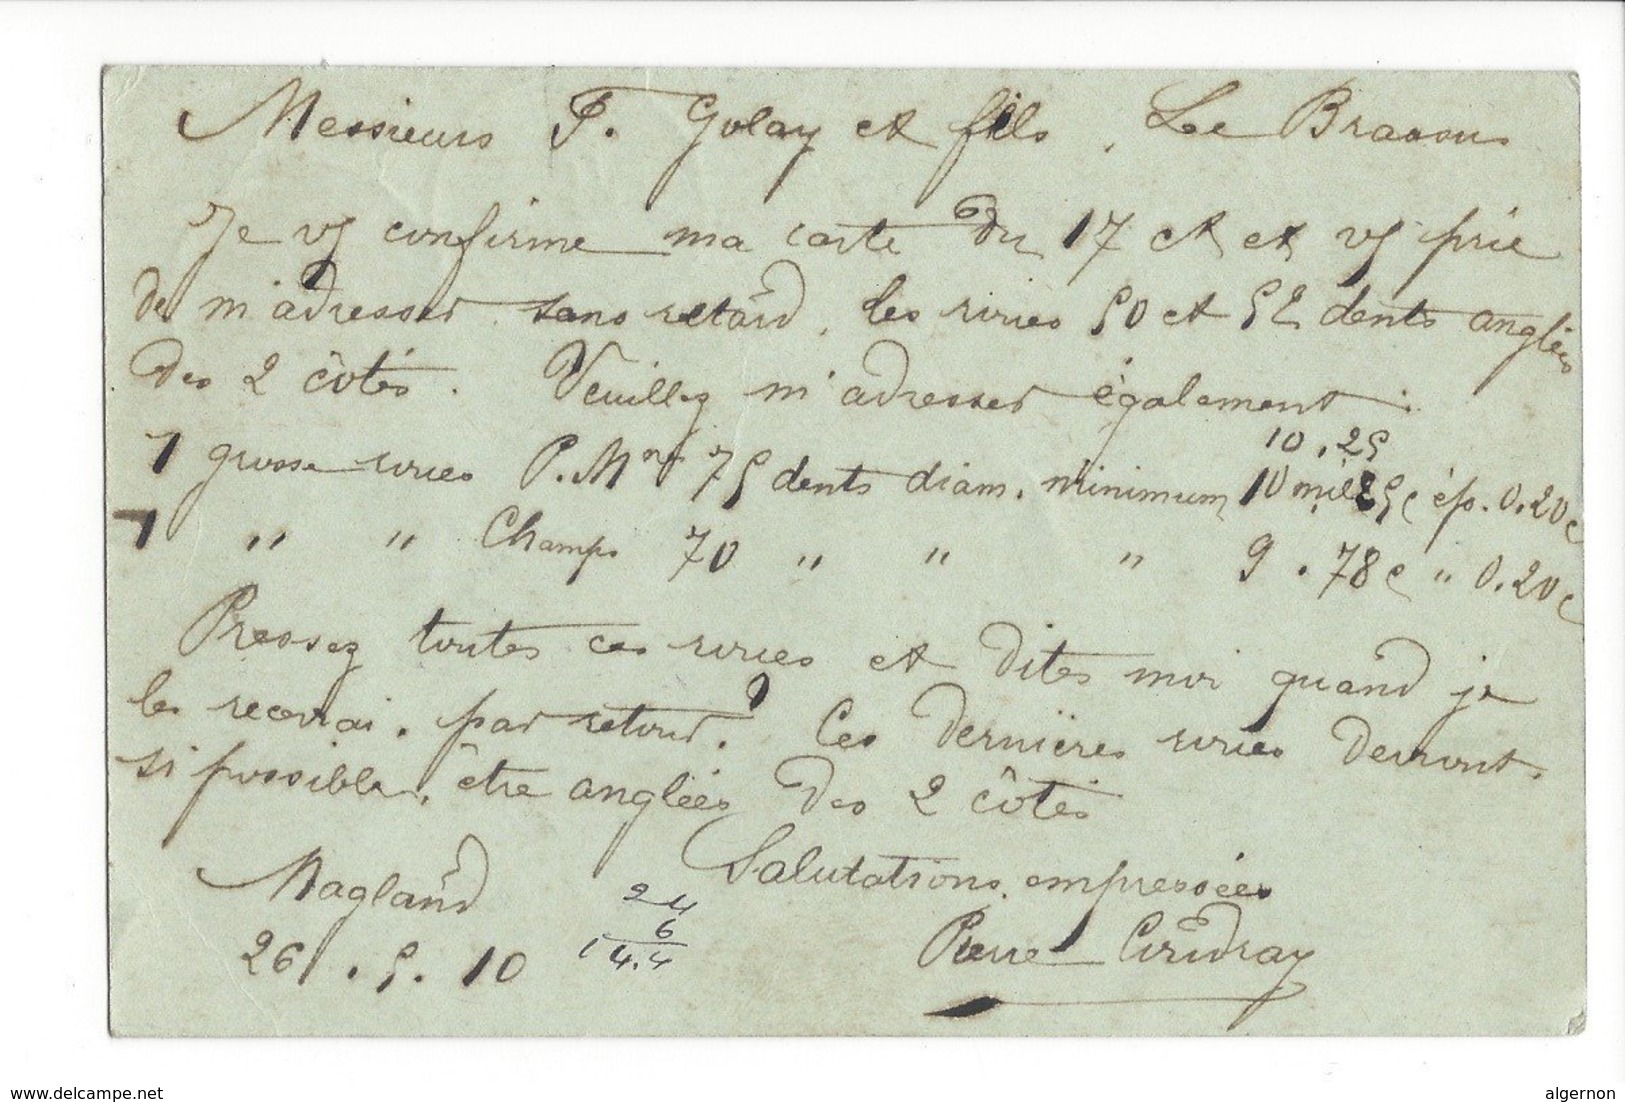 Messieurs F. Golay et fils, Le Brassus
Je vs confirme ma carte du 17 ct et vs prie
de m'adresser sans retard, les séries 50 et 52 dents anglées
des 2 côtés. Veuillez m'adresser également :
10.25
1 grosse séries P. Mnes 75 dents diam. minimum 10 mill 25 c ép. 0.20 c
1 " " Champs 70 " " " 9.78 c " 0.20 c
Pressez toutes ces séries et dites moi quand je
les recevrai, par retour? Ces dernières séries devront,
si possible, être anglées des 2 côtés
Salutations empressées
Magland
26.5.10
Pierre
24
6
14.4
delcampe.net
algernon